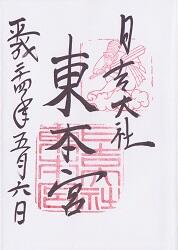 日吉大社
東本宮
平成二十四年五月六日